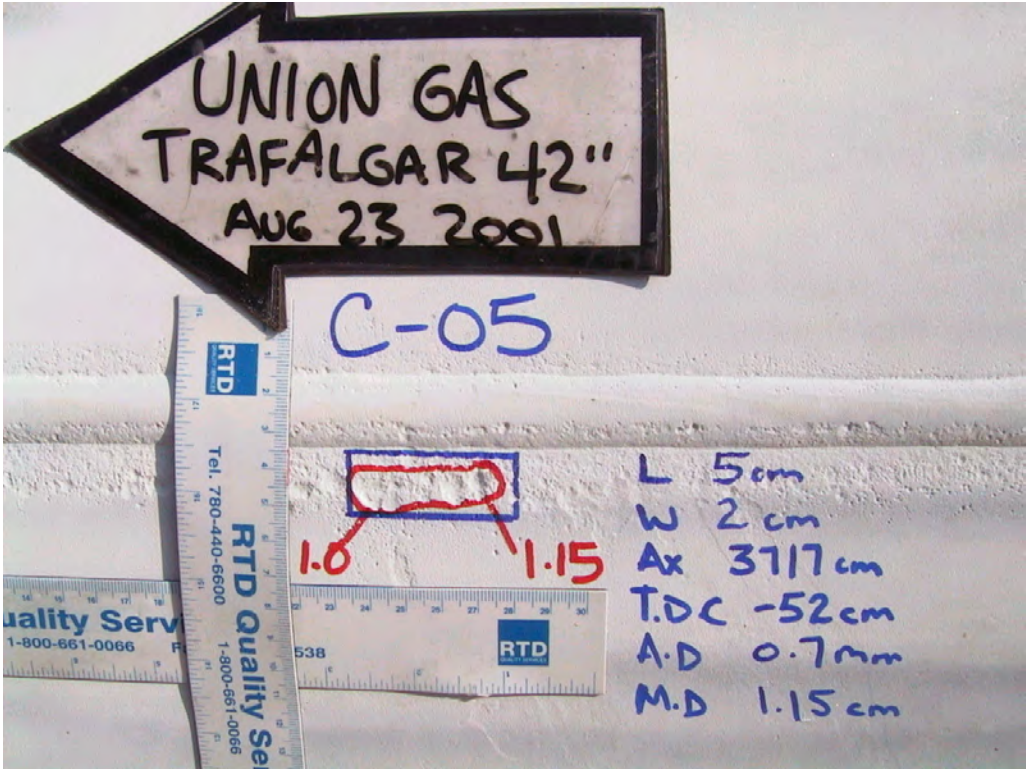 UNION GAS
TRAFALGAR 42"
AUG 23 2001
C-05
RTD
Tel. 780-440-6600
RTD Quality Se
1-800-661-0066
1.0
1.15
L 5cm
W 2 cm
Ax 3717 cm
T.D.C -52cm
A.D 0.7mm
M.D 1.15 cm
uality Serv
1-800-661-0066
538
RTD
QUALITY SERVICES